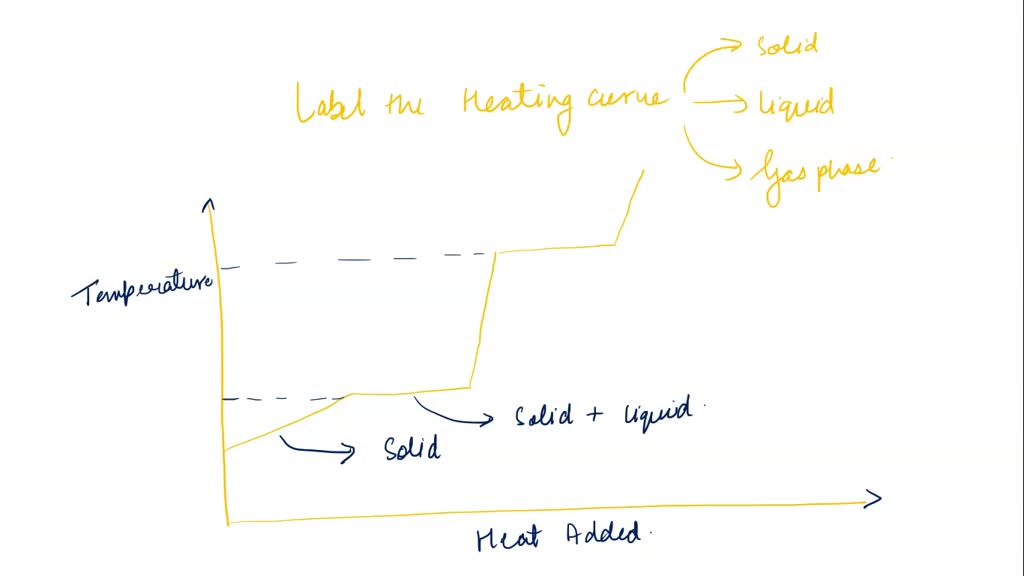 Label the Heating curve
Solid
Liquid
Gas phase
Temperature
Solid + Liquid
Solid
Heat Added